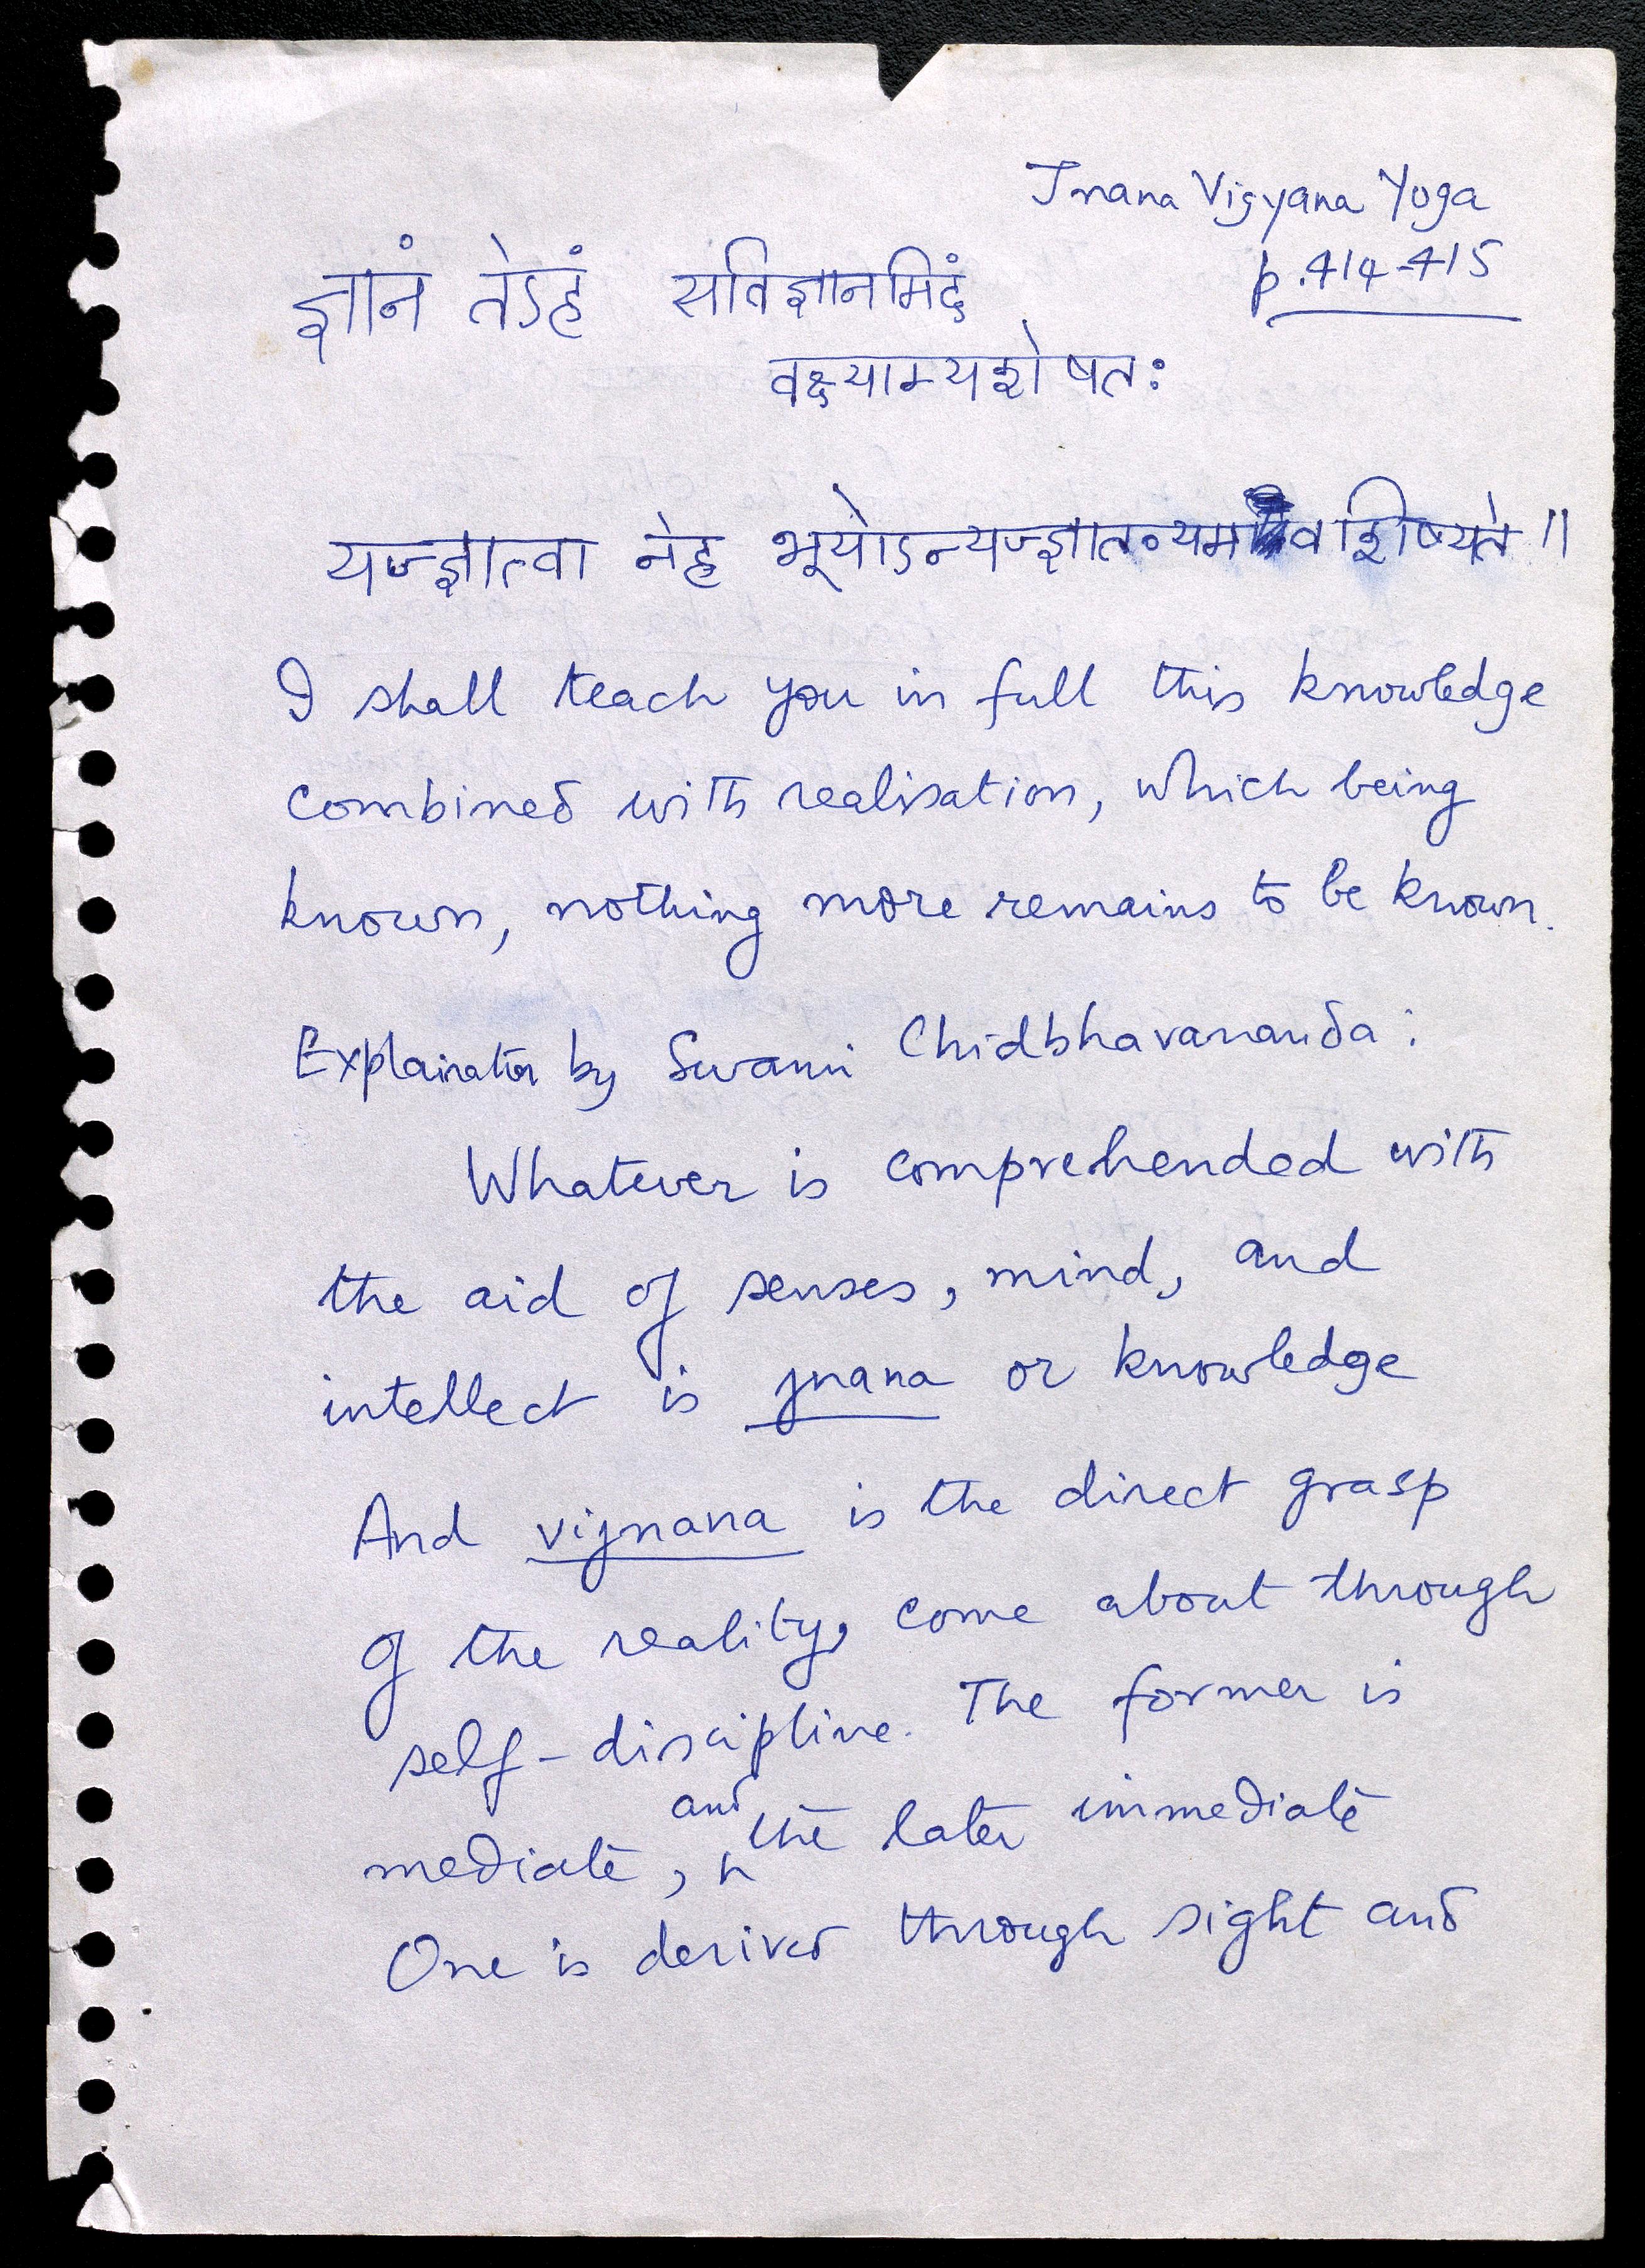 Jnana Vigyana Yoga
p. 414-415
ज्ञानं तेऽहं सविज्ञानमिदं
वक्ष्याम्यशेषतः
यज्ज्ञात्वा नेह भूयोऽन्यज्ज्ञातव्यमवशिष्यते ॥
I shall teach you in full this knowledge
combined with realisation, which being
known, nothing more remains to be known.
Explaination by Swami Chidbhavananda:
Whatever is comprehended with
the aid of senses, mind, and
intellect is jnana or knowledge
And vijnana is the direct grasp
of the reality, come about through
self-discipline. The former is
mediate, and the later immediate
One is derived through sight and